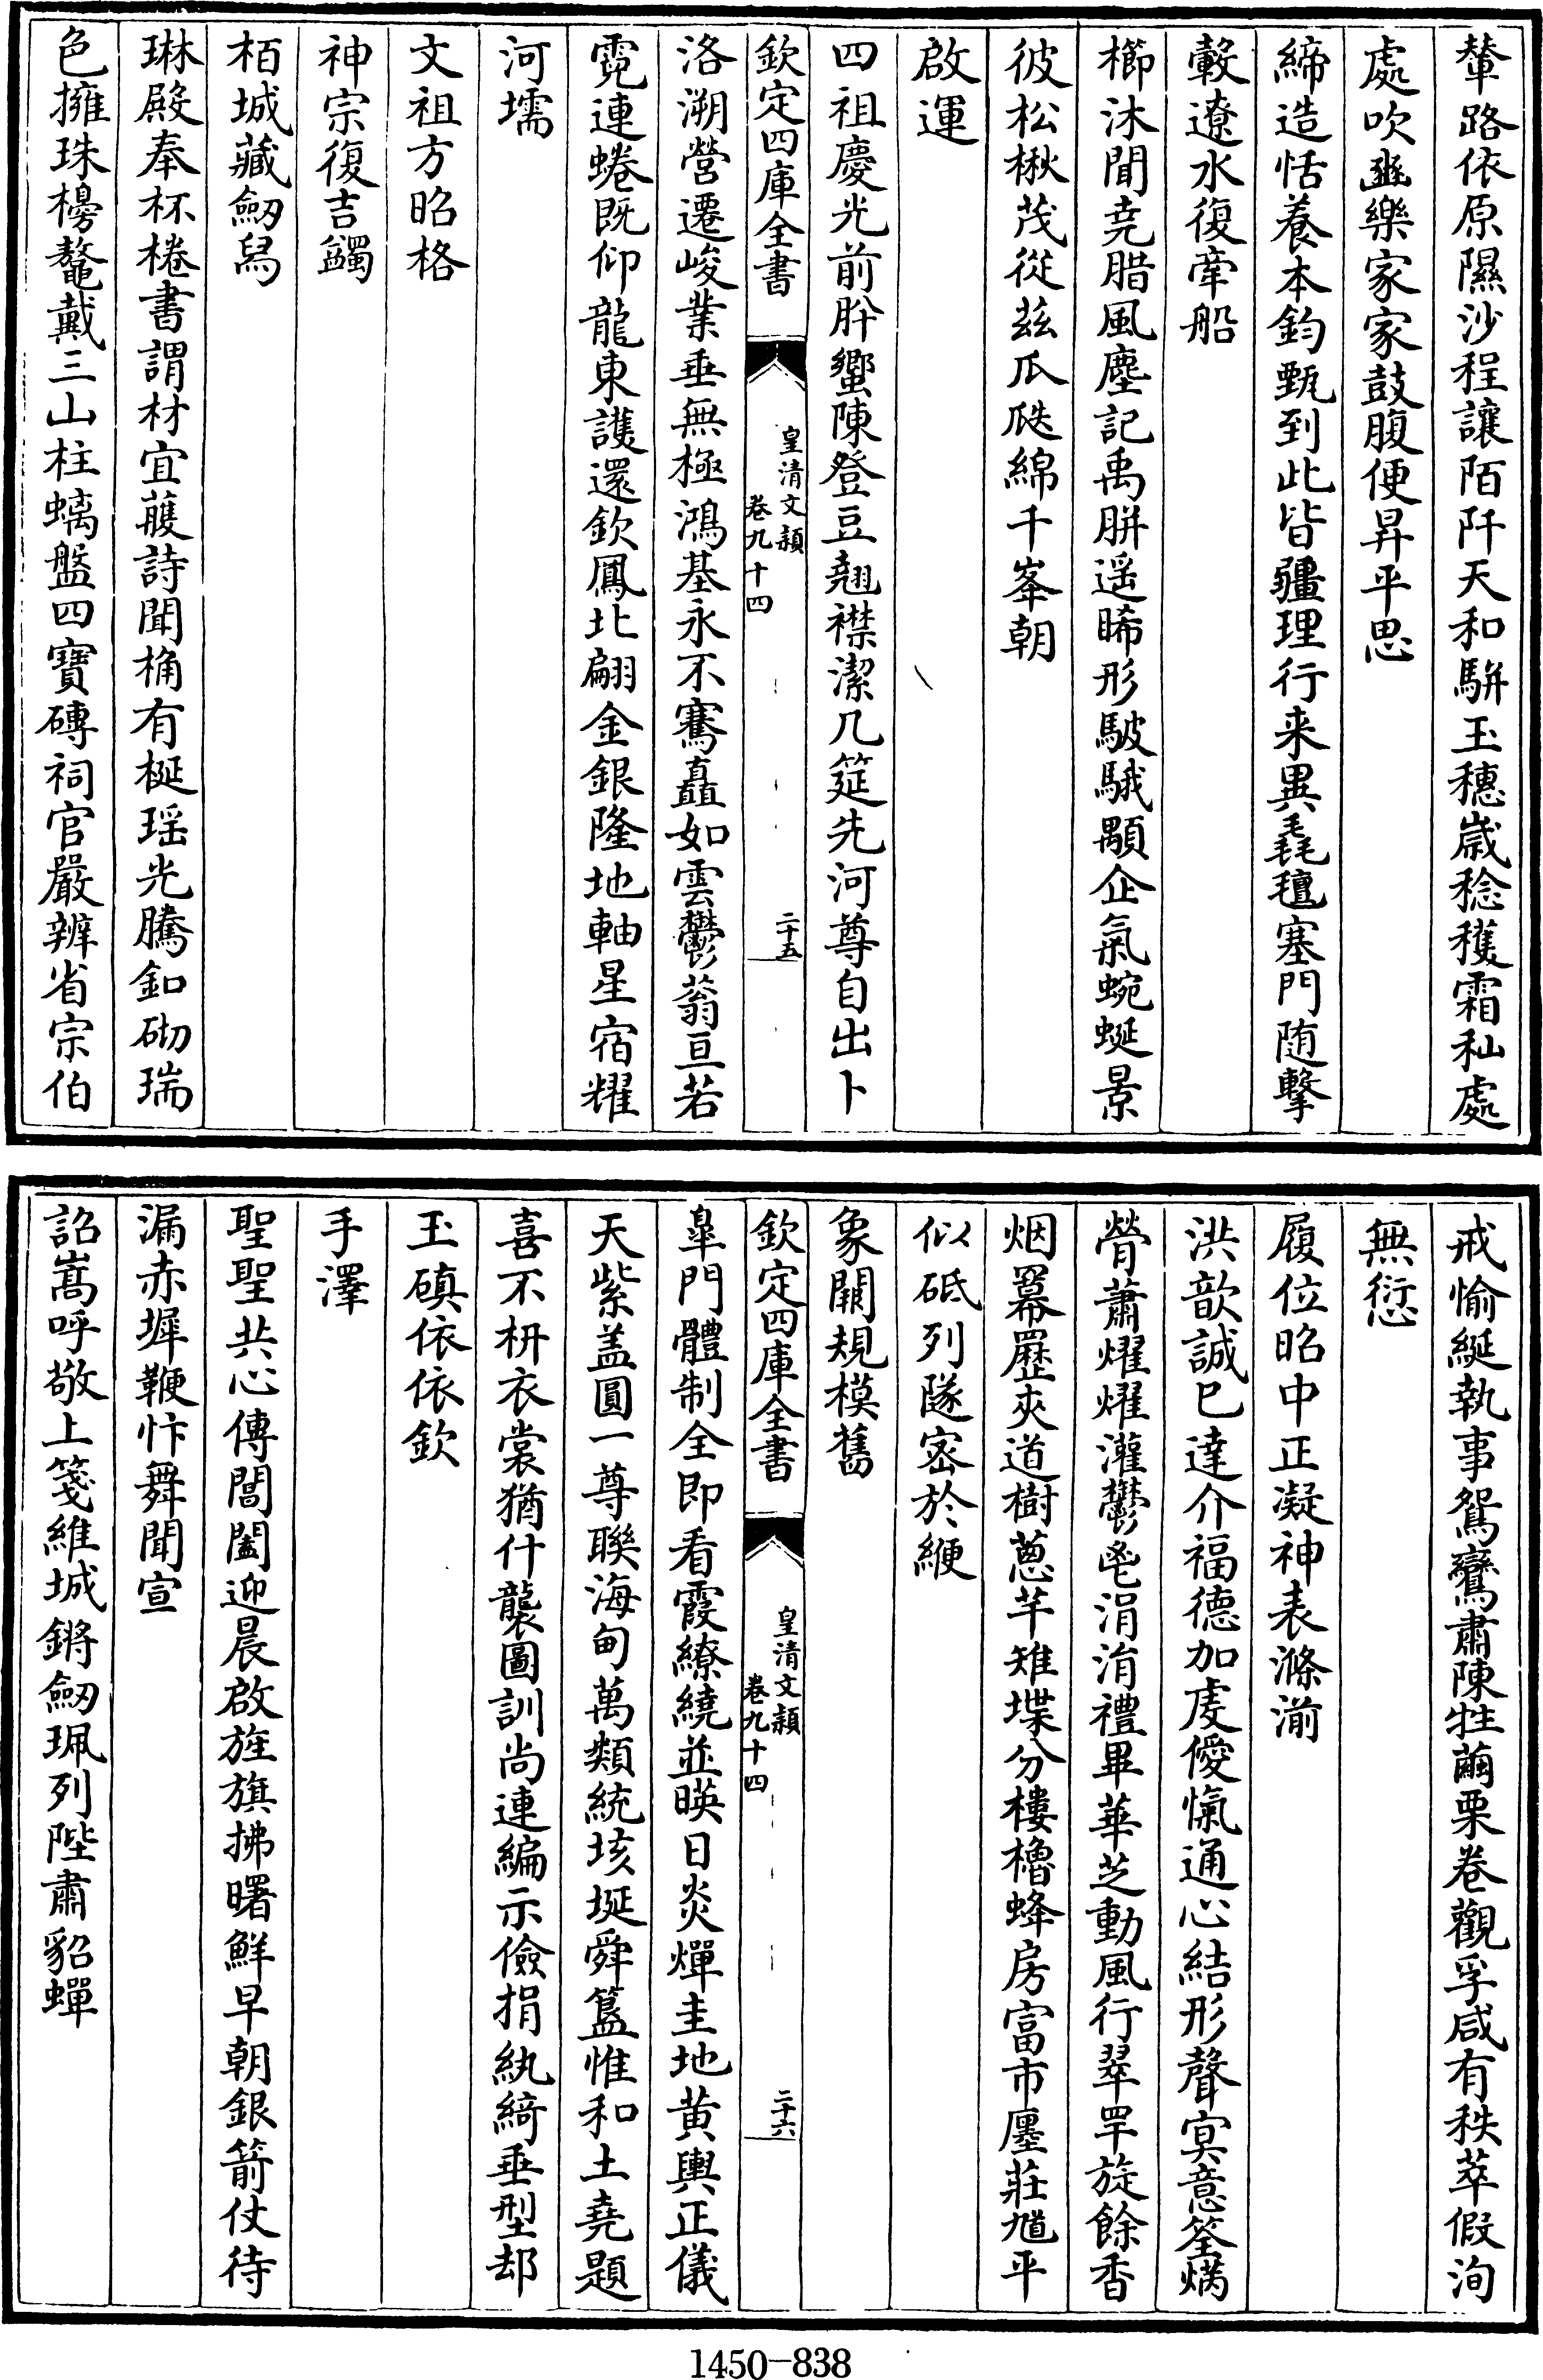 輦路依原隰沙程讓陌阡天和駢玉穗嵗稔穫霜秈處
處吹豳樂家家鼓腹便昇平思
締造恬養本鈞甄到此皆疆理行来異毳氊塞門随擊
轂遼水復牽船
櫛沐聞堯腊風塵記禹胼遥睎形駊騀顒企氣蜿蜒景
彼松楸茂從兹瓜瓞綿千峯朝
啟運
四祖慶光前肸蠁陳登豆翹襟潔几筵先河尊自出卜
欽定四庫全書
皇清文頴
卷九十四
二十五
洛溯營遷峻業垂無極鴻基永不騫矗如雲鬱蓊亘若
霓連蜷既仰龍東護還欽鳳北翩金銀隆地軸星宿耀
河壖
文祖方昭格
神宗復吉蠲
栢城藏劒舄
琳殿奉杯棬書謂材宜雘詩聞桷有梴瑶光騰釦砌瑞
色擁珠櫋鼇戴三山柱螭盤四寶磚祠官嚴辨省宗伯
戒愉綖執事鴛鸞肅陳牲繭栗卷觀孚咸有秩萃假洵
無愆
履位昭中正凝神表滌湔
洪歆誠已達介福德加虔僾愾通心結形聲寘意筌焫
膋蕭燿燿灌鬱鬯涓涓禮畢華芝動風行翠罕旋餘香
烟羃䍥夾道樹蔥芊雉堞分樓櫓蜂房富市廛莊馗平
似砥列隧宻於緶
象闕規模舊
欽定四庫全書
皇清文頴
卷九十四
二十六
皐門體制全即看霞繚繞並暎日炎燀圭地黄輿正儀
天紫盖圓一尊聯海甸萬類統垓埏舜簋惟和土堯題
喜不枅衣裳猶什襲圖訓尚連編示儉捐紈綺垂型却
玉磌依依欽
手澤
聖聖共心傳閶闔迎晨啟旌旗拂曙鮮早朝銀箭仗待
漏赤墀鞭忭舞聞宣
詔嵩呼敬上箋維城鏘劒珮列陛肅貂蟬
1450-838